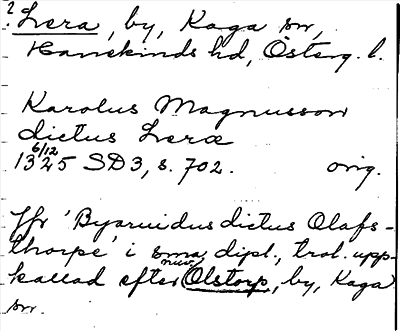 ? Lera, by, Kaga sn,
Hanekinds hd, Österg. l.
Karolus Magnusson
dictus Leræ
6/12
1325 SD3, s. 702. orig.
Jfr 'Byarnidus dictus Olafs-
thorpe' i sma dipl., trol. upp-
kallad efter nuv. Olstorp, by, Kaga
sn.